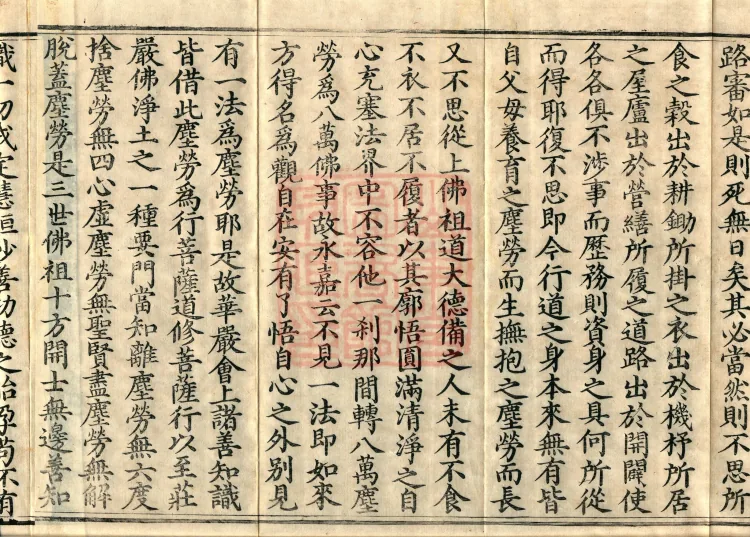 路審如是則死無日矣其必當然則不思所
食之穀出於耕鋤所掛之衣出於機杼所居
之屋廬出於營繕所履之道路出於開闢使
各各俱不涉事而歷務則資身之具何所從
而得耶復不思即今行道之身本來無有皆
自父母養育之塵勞而生撫抱之塵勞而長
又不思從上佛祖道大德備之人未有不食
不衣不居不履者以其廓悟圓滿清淨之自
心充塞法界中不容他一刹那間轉八萬塵
勞爲八萬佛事故永嘉云不見一法即如來
方得名爲觀自在安有了悟自心之外別見
有一法爲塵勞耶是故華嚴會上諸善知識
皆借此塵勞爲行菩薩道修菩薩行以至莊
嚴佛淨土之一種要門當知離塵勞無六度
捨塵勞無四心虛塵勞無聖賢蓋塵勞無解
脫蓋塵勞是三世佛祖十方開士無邊善知
識一切戒定慧恒沙善功德之胎孕苟不有